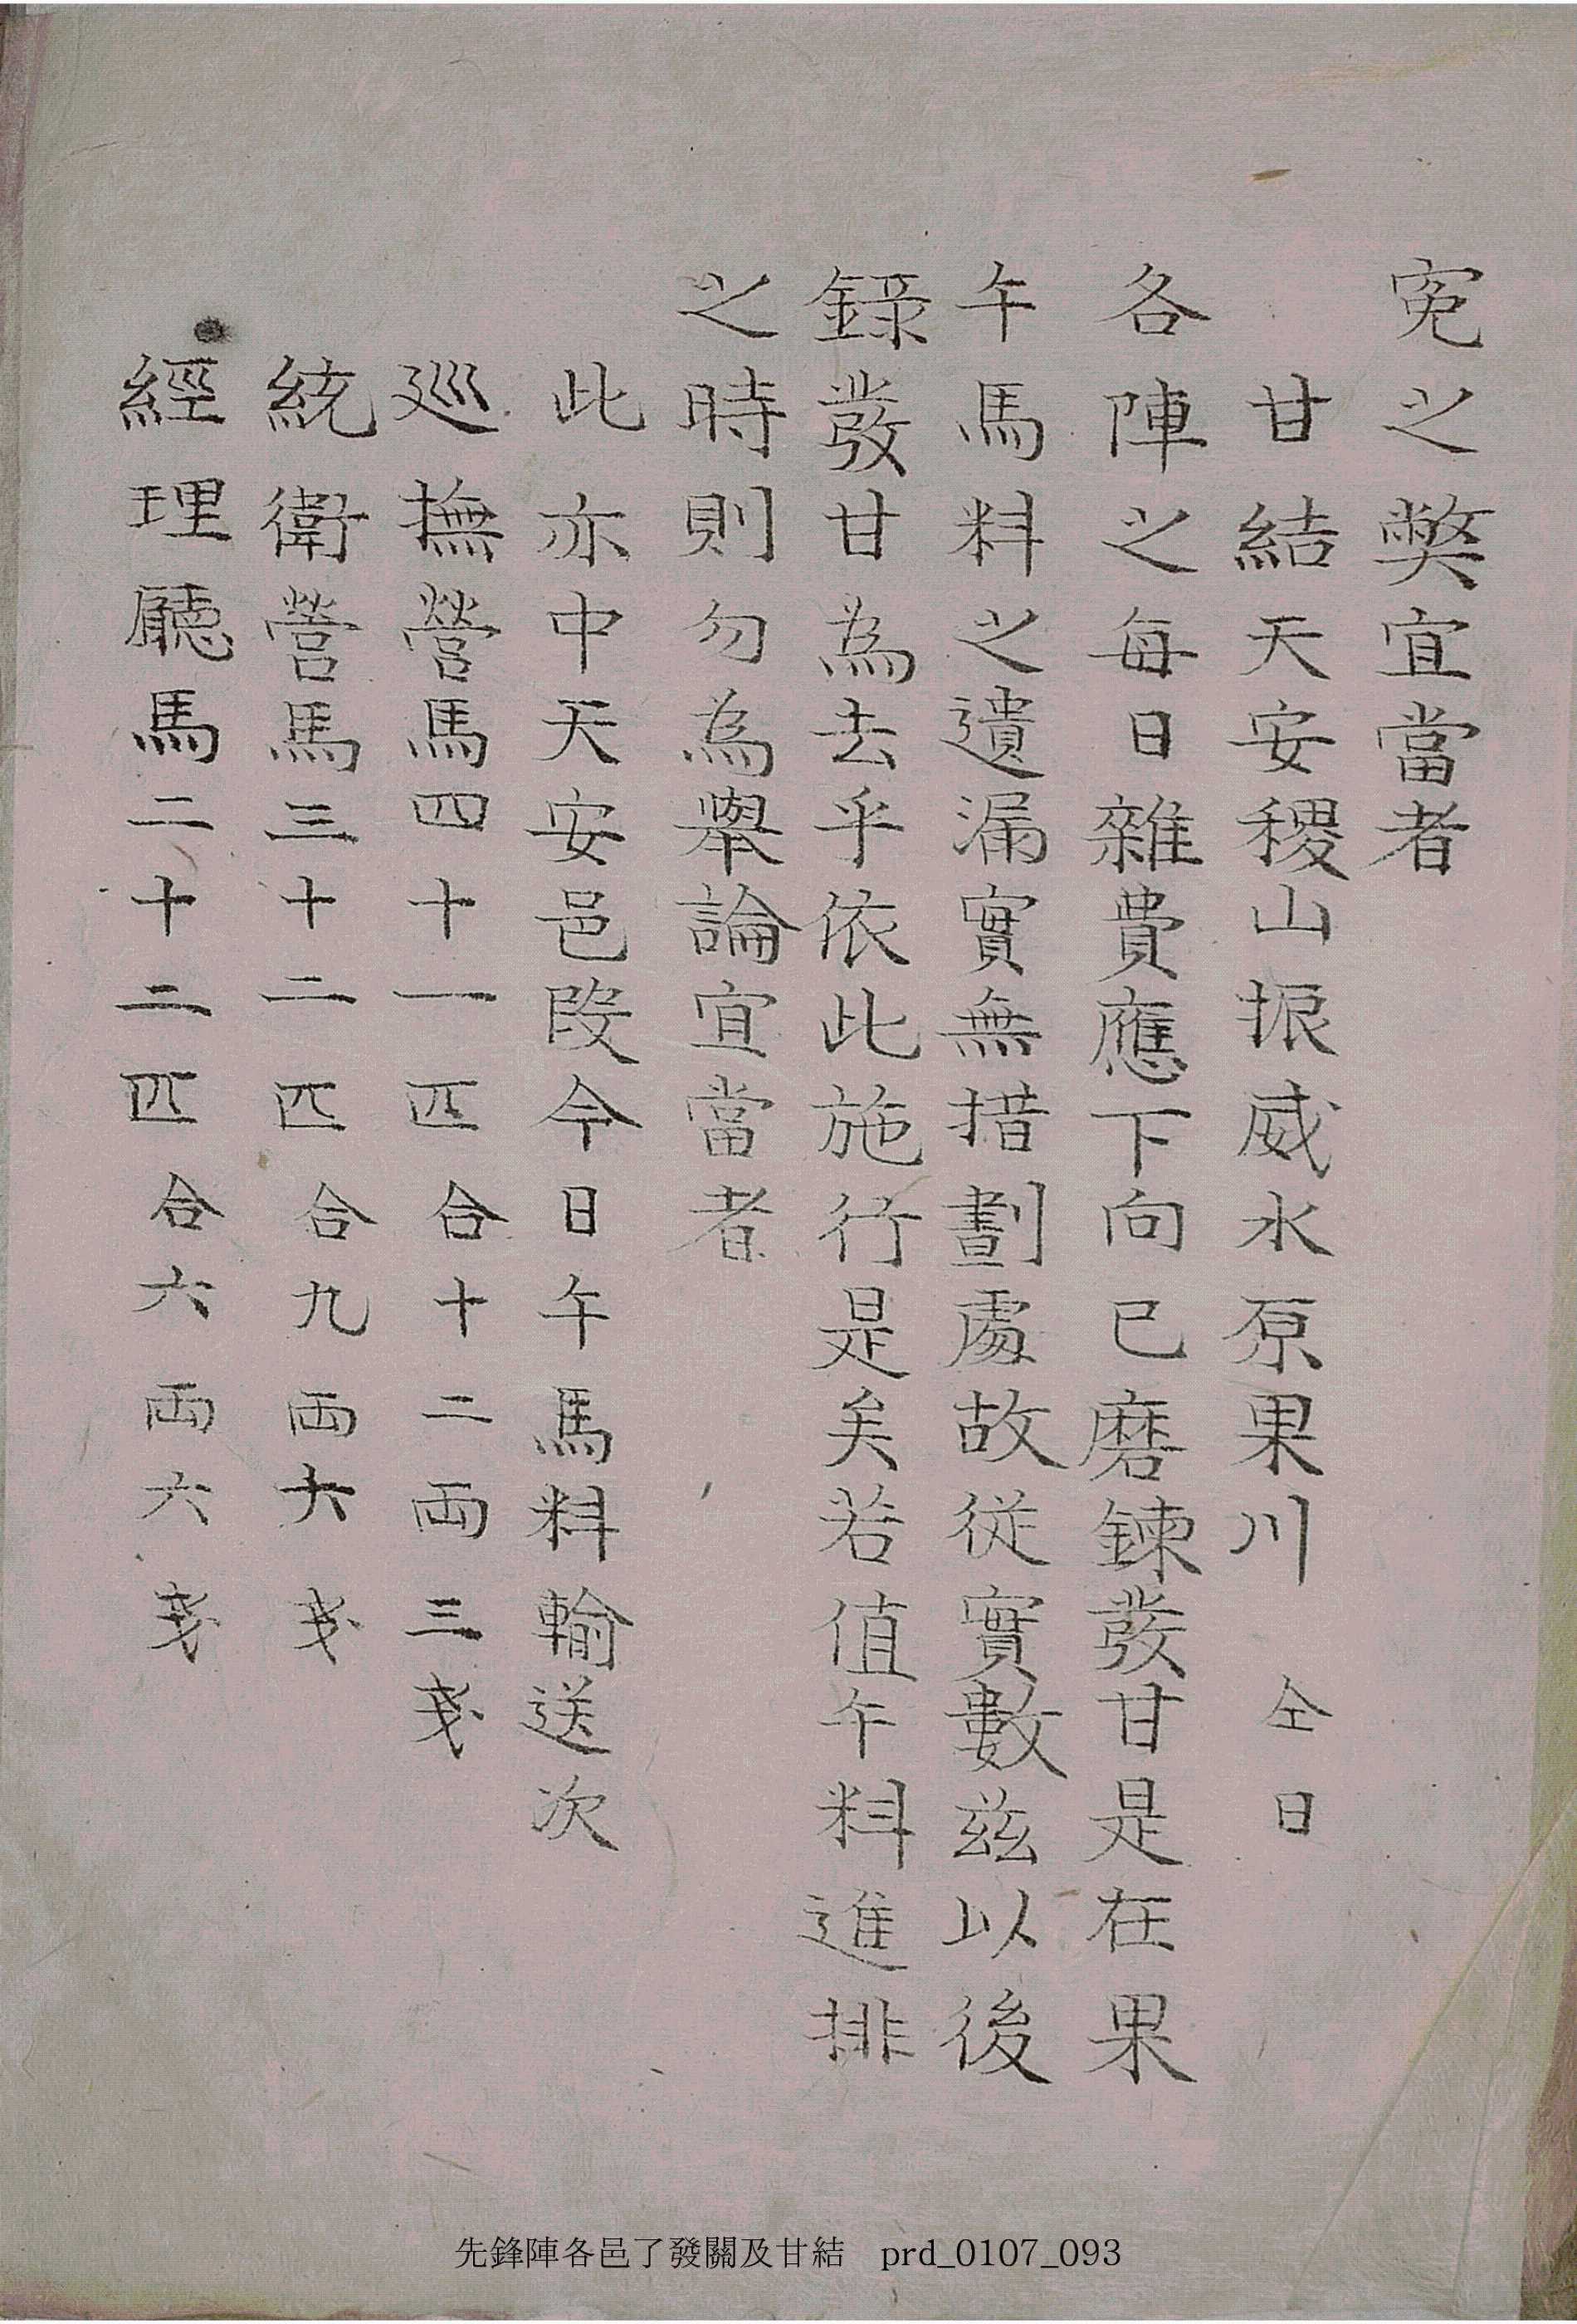 寃之弊宜當者
甘結天安稷山振威水原果川 仝日
各陣之每日雜費應下向已磨鍊發甘是在果
午馬料之遺漏實無措劃處故從實數玆以後
錄發甘為去乎依此施行是矣若值午料進排
之時則勿為擧論宜當者
此亦中天安邑段今日午馬料輸送次
廵撫營馬四十一匹合十二両三戔
統衛營馬三十二匹合九両六戔
經理廳馬二十二匹合六両六戔
先鋒陣各邑了發關及甘結 prd_0107_093